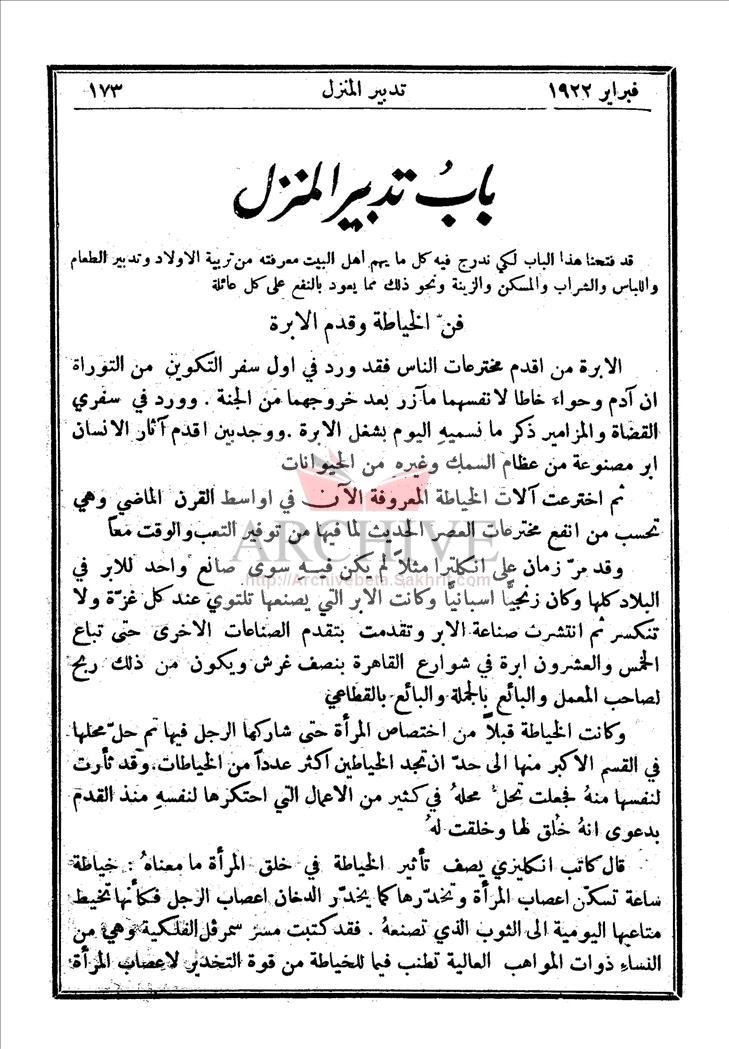 فبراير ١٩٢٢ تدبير المنزل ١٧٣
بابُ تدبير المنزل
قد فتحنا هذا الباب لكي ندرج فيه كل ما يهم اهل البيت معرفته من تربية الاولاد وتدبير الطعام
واللباس والشراب والمسكن والزينة ونحو ذلك مما يعود بالنفع على كل عائلة
فنّ الخياطة وقدم الابرة
الابرة من اقدم مخترعات الناس فقد ورد في اول سفر التكوين من التوراة
ان آدم وحواء خاطا لانفسهما مآزر بعد خروجهما من الجنة . وورد في سفري
القضاة والمزامير ذكر ما نسميهِ اليوم بشغل الابرة . ووجد بين اقدم آثار الانسان
ابر مصنوعة من عظام السمك وغيره من الحيوانات
ثم اخترعت آلات الخياطة المعروفة الآن في اواسط القرن الماضي وهي
تحسب من انفع مخترعات العصر الحديث لما فيها من توفير التعب والوقت معاً
ARCHIVE
وقد مرّ زمان على انكلترا مثلاً لم يكن فيهِ سوى صانع واحد للابر في
http://Archivebeta.Sakhrit.com
البلاد كلها وكان زنجيًّا اسبانيًّا وكانت الابر التي يصنعها تلتوي عند كل غرزة ولا
تنكسر ثم انتشرت صناعة الابر وتقدمت بتقدم الصناعات الاخرى حتى تباع
الخمس والعشرون ابرة في شوارع القاهرة بنصف غرش ويكون من ذلك ربح
لصاحب المعمل والبائع بالجملة والبائع بالقطاعي
وكانت الخياطة قبلاً من اختصاص المرأة حتى شاركها الرجل فيها ثم حلّ محلها
في القسم الاكبر منها الى حدّ ان تجد الخياطين اكثر عدداً من الخياطات. وقد ثأرت
لنفسها منهُ فجعلت تحلُّ محلهُ في كثير من الاعمال التي احتكرها لنفسهِ منذ القدم
بدعوى انهُ خُلق لها وخلقت لهُ
قال كاتب انكليزي يصف تأثير الخياطة في خلق المرأة ما معناهُ : خياطة
ساعة تسكّن اعصاب المرأة وتخدّرها كما يخدّر الدخان اعصاب الرجل فكأنها تخيط
متاعبها اليومية الى الثوب الذي تصنعهُ . فقد كتبت مسز سمرڤل الفلكية وهي من
النساءِ ذوات المواهب العالية تطنب فيما للخياطة من قوة التخدير لاعصاب المرأة